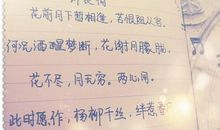 花前月下暂相逢。苦恨阻从容。
何况酒醒梦断，花谢月朦胧。
花不尽，月无穷。两心同。
此时愿作，杨柳千丝，绊惹春